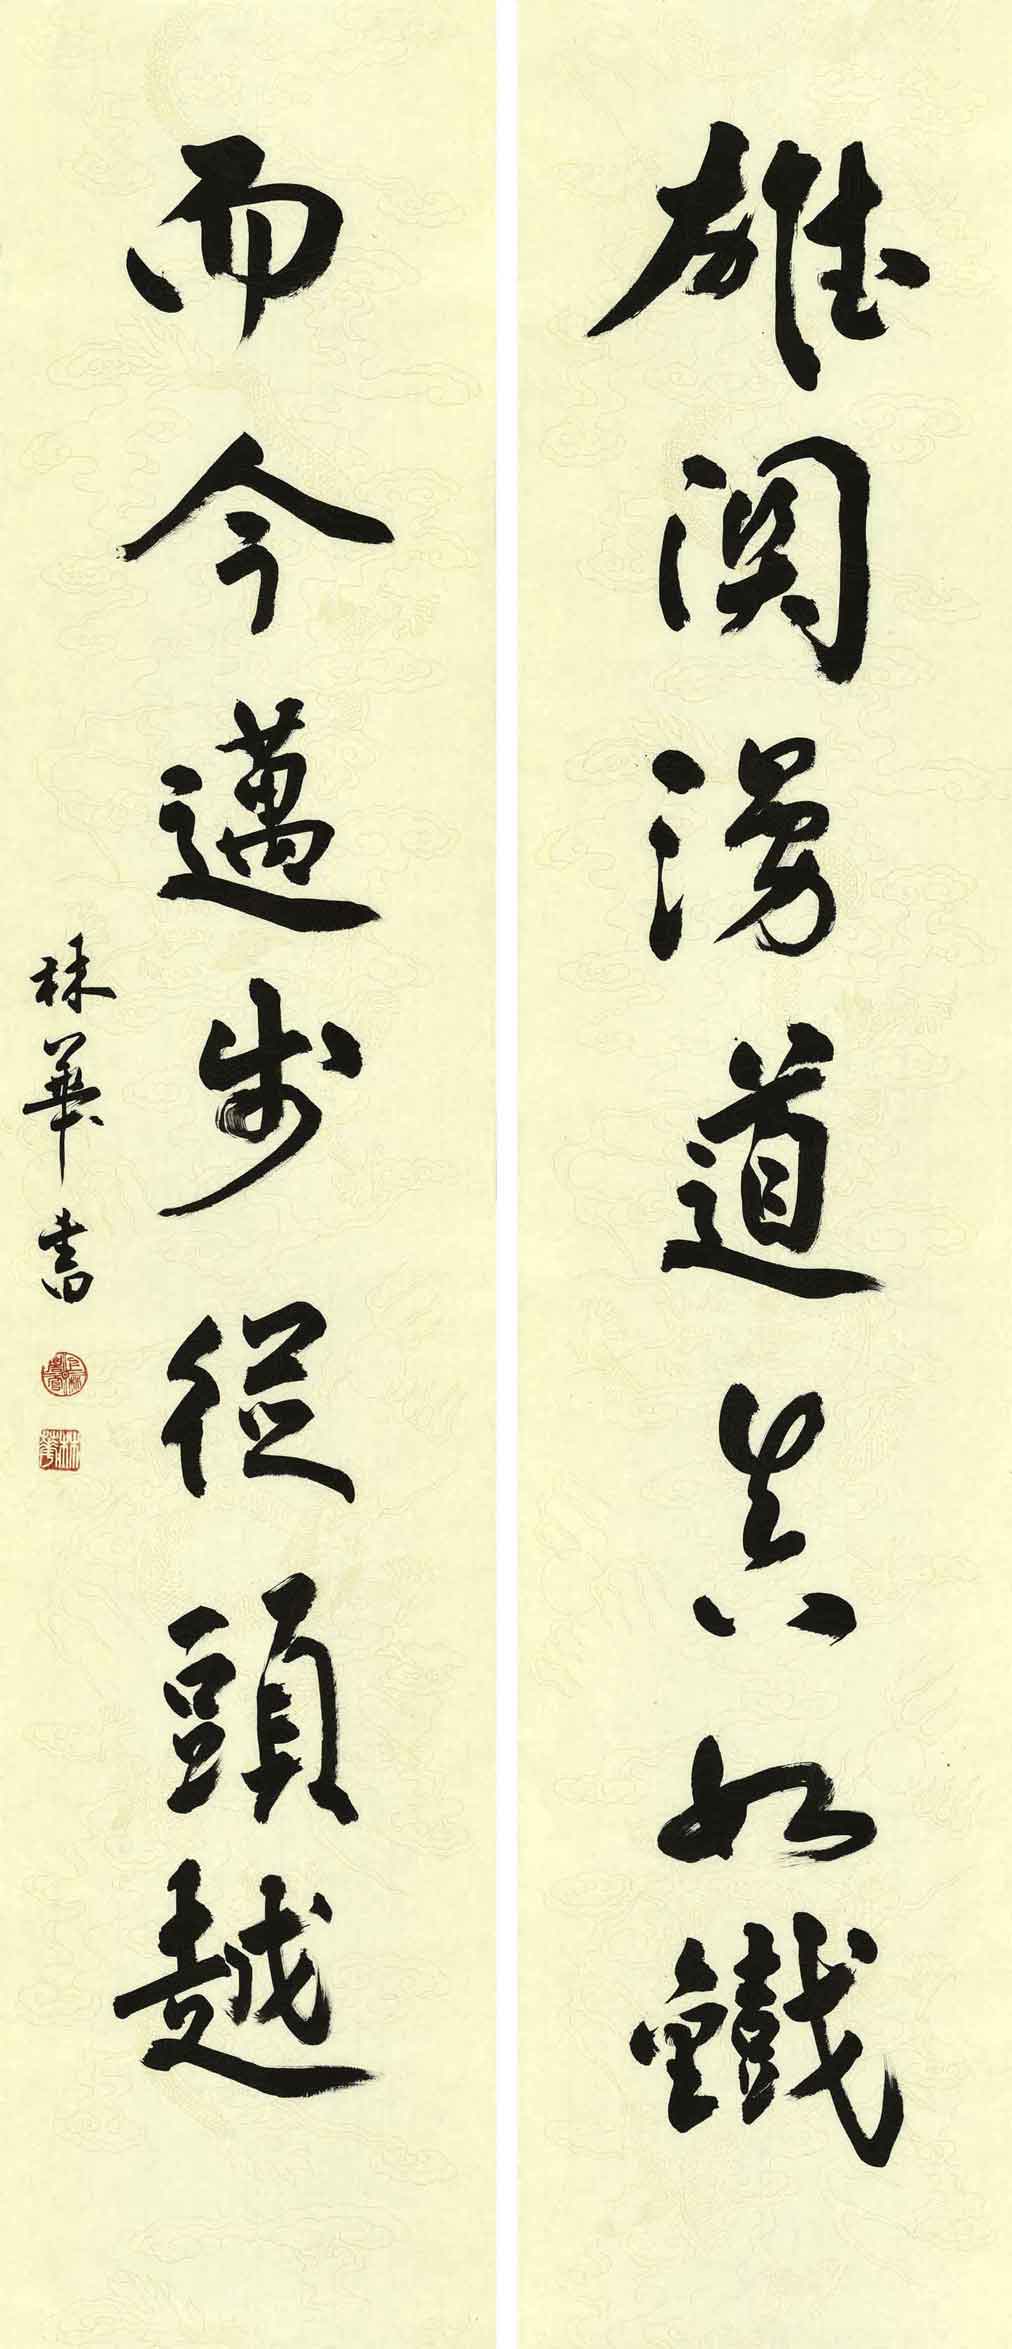 雄関漫道真如鐵
而今邁步從頭越
林華書
林華